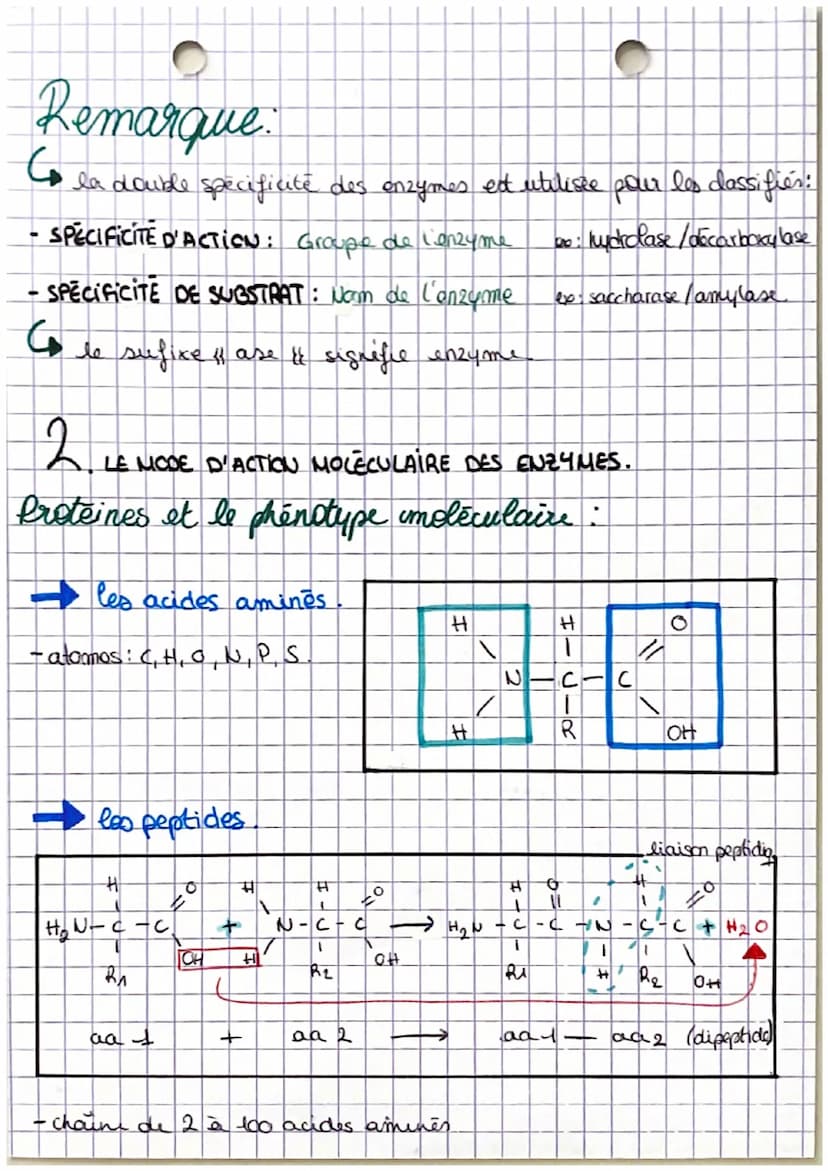 Remarque:
la double spécificité des enzymes est utilisée pour les classifiés:
- SPÉCIFICITÉ D'ACTION: Groupe de l'enzyme ex: hydrolase/décarboxylase
- SPÉCIFICITÉ DE SUBSTRAT: Nom de l'enzyme ex: saccharase/amylase
le sufixe « ase « signifie enzyme
2. LE MODE D'ACTION MOLÉCULAIRE DES ENZYMES.
Protéines et le phénotype moléculaire:
→ les acides aminés.
- atomes: C, H, O, N, P, S.
H H O
N — C — C
H R OH
→ les peptides.
liaison peptidiq
H O H H O H O H O
H2N - C - C + N - C - C → H2N - C - C - N - C - C + H2O
OH H OH
R1 R2 R1 H R2 OH
aa 1 + aa 2 → aa 1 — aa 2 (dipeptide)
- chaîne de 2 à 100 acides aminés